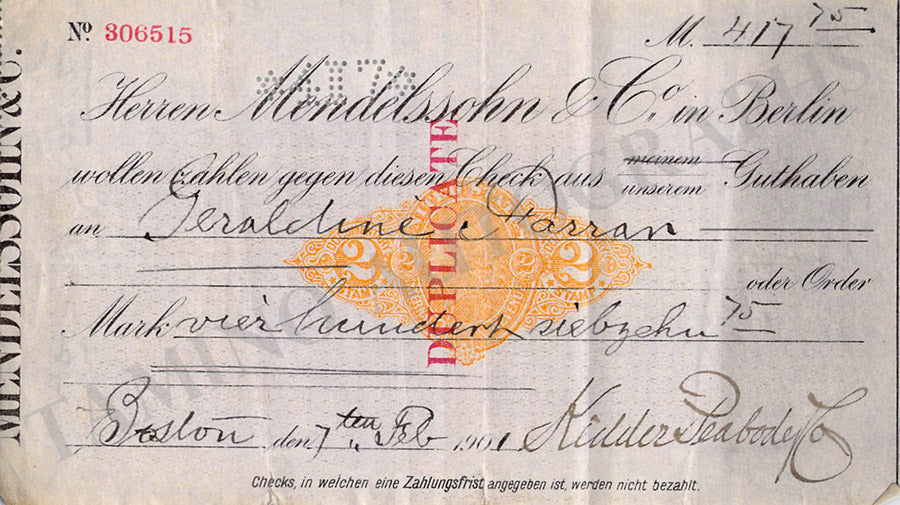 MENDELSSOHN & C.
Nº 306515
M. 417 75
*417*
Herren Mendelssohn & Cº. in Berlin
wollen zahlen gegen diesen Check aus meinem unserem Guthaben
an Geraldine Farrar
2 2 2
DUPLICATE
oder Order
Mark vier hundert siebzehn 75
Boston den 7ten Feb 1901 Kidder Peabody & Co
Checks, in welchen eine Zahlungsfrist angegeben ist, werden nicht bezahlt.
TAMINO AUTOGRAPHS